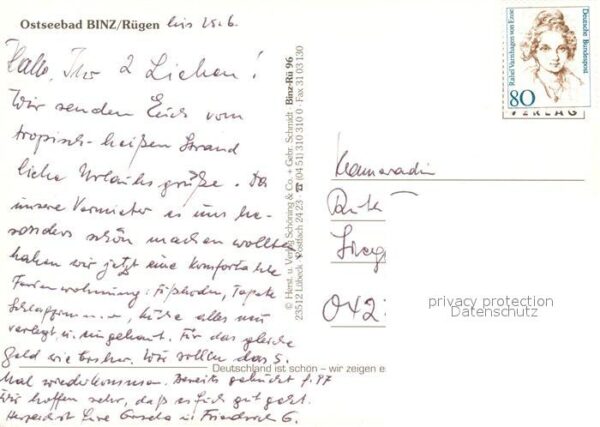 Ostseebad BINZ/Rügen bis 25.6.
Hallo, Ihr 2 Lieben!
Wir senden Euch vom
tropisch-heißen Strand
liebe Urlaubsgrüße. Da
unsere Vermieter es uns be-
sonders schön machen wollten
haben wir jetzt eine komfortable
Ferienwohnung: Fußboden, Tapete
alles neu
verlegt u. eingebaut. Für das gleiche
Geld wie bisher. Wir wollen das 5.
Mal wiederkommen. Bereits gebucht f. 97
Wir hoffen sehr, daß es Euch gut geht.
Herzlichst Eure Gisela u. Friedrich G.
© Herst. u. Verlag Schöning & Co. + Gebr. Schmidt Binz-Rü 96
23512 Lübeck · Postfach 24 23 · ☎ (04 51) 310 310 0 · Fax 31 03 130
Rahel Varnhagen von Ense
Deutsche Bundespost
80
VERLAG
Kameradin
042
privacy protection
Datenschutz
Deutschland ist schön – wir zeigen e